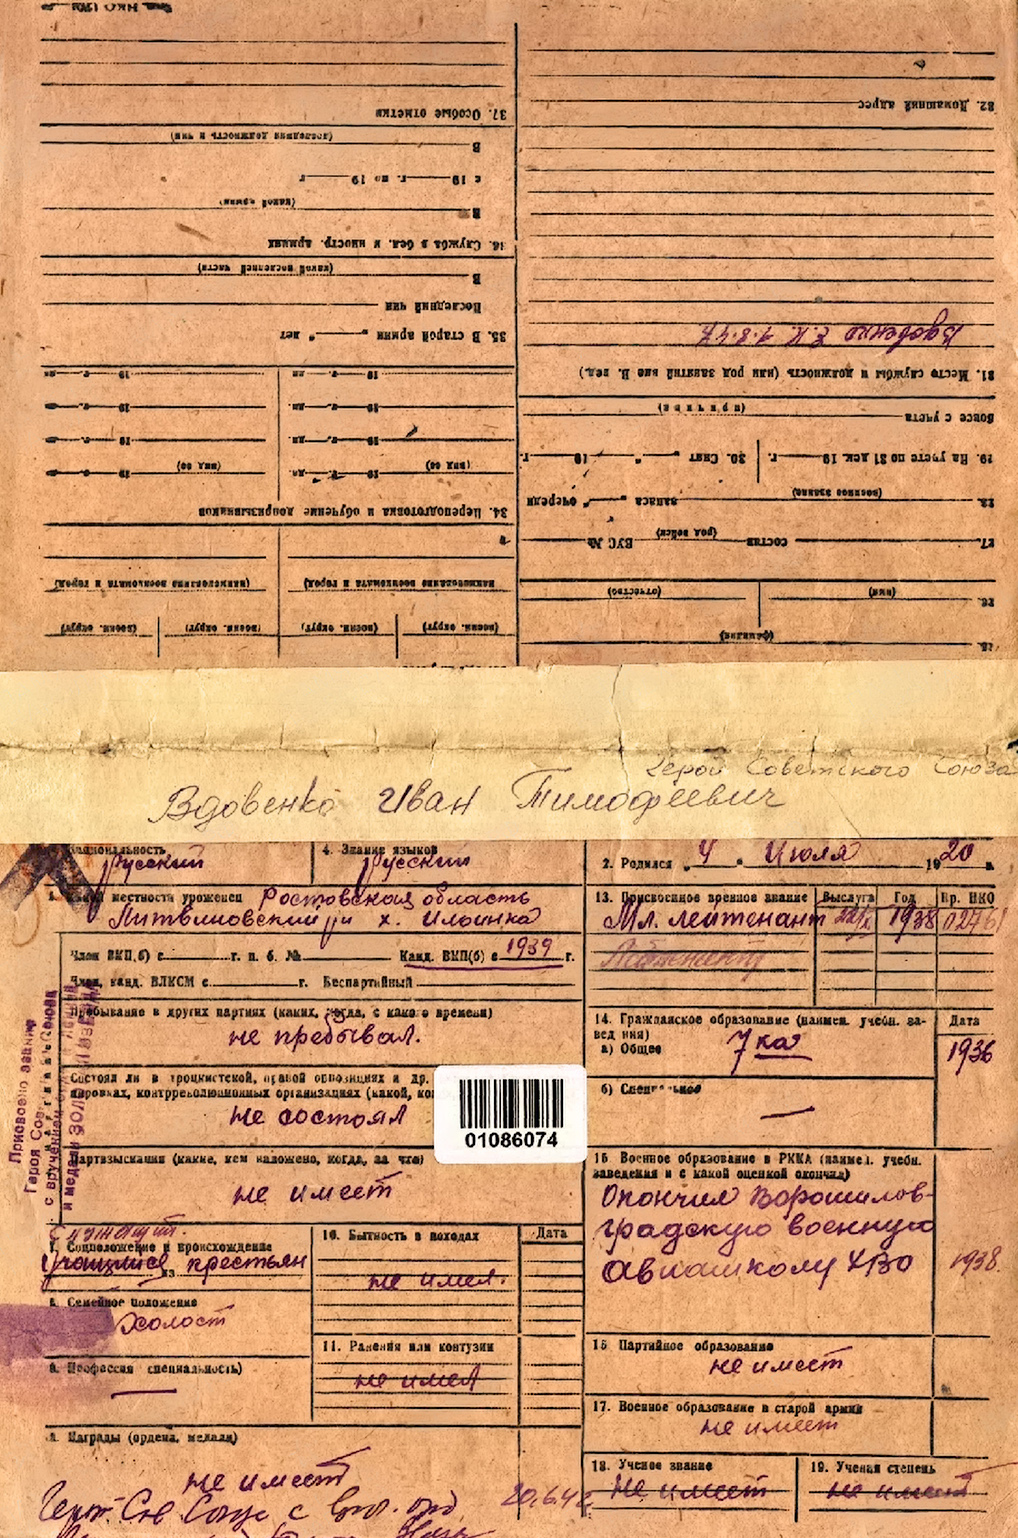 37. Особые отметки
(последняя должность и чин)
В
с 19 г. по 19 г
(какой армии)
В
36. Служба в бел. и иностр. армиях
(какой последней части)
В
Последний чин
35. В старой армии „ " лет
19 г. по 19 г. дн.
19 г. по 19 г. дн.
19 г. по 19 г. дн.
(вид во) 19 г. (вид во) 19 г. дн.
34. Переподготовка и обучение допризывников
(наименование военкомата и город) (наименование военкомата и город)
(воен. округ) (воен. округ) (воен. округ) (воен. округ)
32. Домашний адрес
Вдовенко Е.К. 1.8.47
31. Место службы и должность (или род занятий вне В. вед.)
вовсе с учета
(причина)
29. На учете по 31 дек. 19 г. 30. Снят „ " 19 г.
28. запаса „ " очереди
(военное звание)
27. состав ВУС №
(род войск)
26.
(имя) (отчество)
25.
(фамилия)
Герой Советского Союза
Вдовенко Иван Тимофеевич
Национальность
русский
4. Знание языков
русский
2. Родился „ 4 " Июля 1920 г.
местности уроженец Ростовская область
Литвиновский р-н х. Ильинка
Член ВКП(б) с г. п. б. № Канд. ВКП(б) с 1939 г.
Член, канд. ВЛКСМ с г. Беспартийный
Пребывание в других партиях (каких, когда, с какого времени)
не пребывал.
Состоял ли в троцкистской, правой оппозициях и др.
пировках, контрреволюционных организациях (какой, ко
не состоял
01086074
Партвзыскания (какие, кем наложено, когда, за что)
не имеет
Присвоено звание
Героя Сов
с вручением
и медали ЗОЛОТАЯ ЗВЕЗДА
7. Соцположение и происхождение
учащийся из крестьян
8. Семейное положение
холост
9. Профессия (специальность)
10. Бытность в походах Дата
не имел.
11. Ранения или контузии
не имел
Награды (ордена, медали)
не имеет
Герой Сов Союза с вруч. орд 20.6.42
13. Присвоенное военное звание Выслуга Год Пр. НКО
Мл. лейтенант 22/X 1938 02761
Лейтенант
14. Гражданское образование (наимен. учебн. за- Дата
ведения)
а) Общее 7 кл 1936
б) Специальное
15. Военное образование в РККА (наимен. учебн.
заведения и с какой оценкой окончил)
Окончил Ворошилов-
градскую военную
авиашколу ХВО 1938.
16 Партийное образование
не имеет
17. Военное образование в старой армии
не имеет
18. Ученое звание
не имеет
19. Ученая степень
не имеет